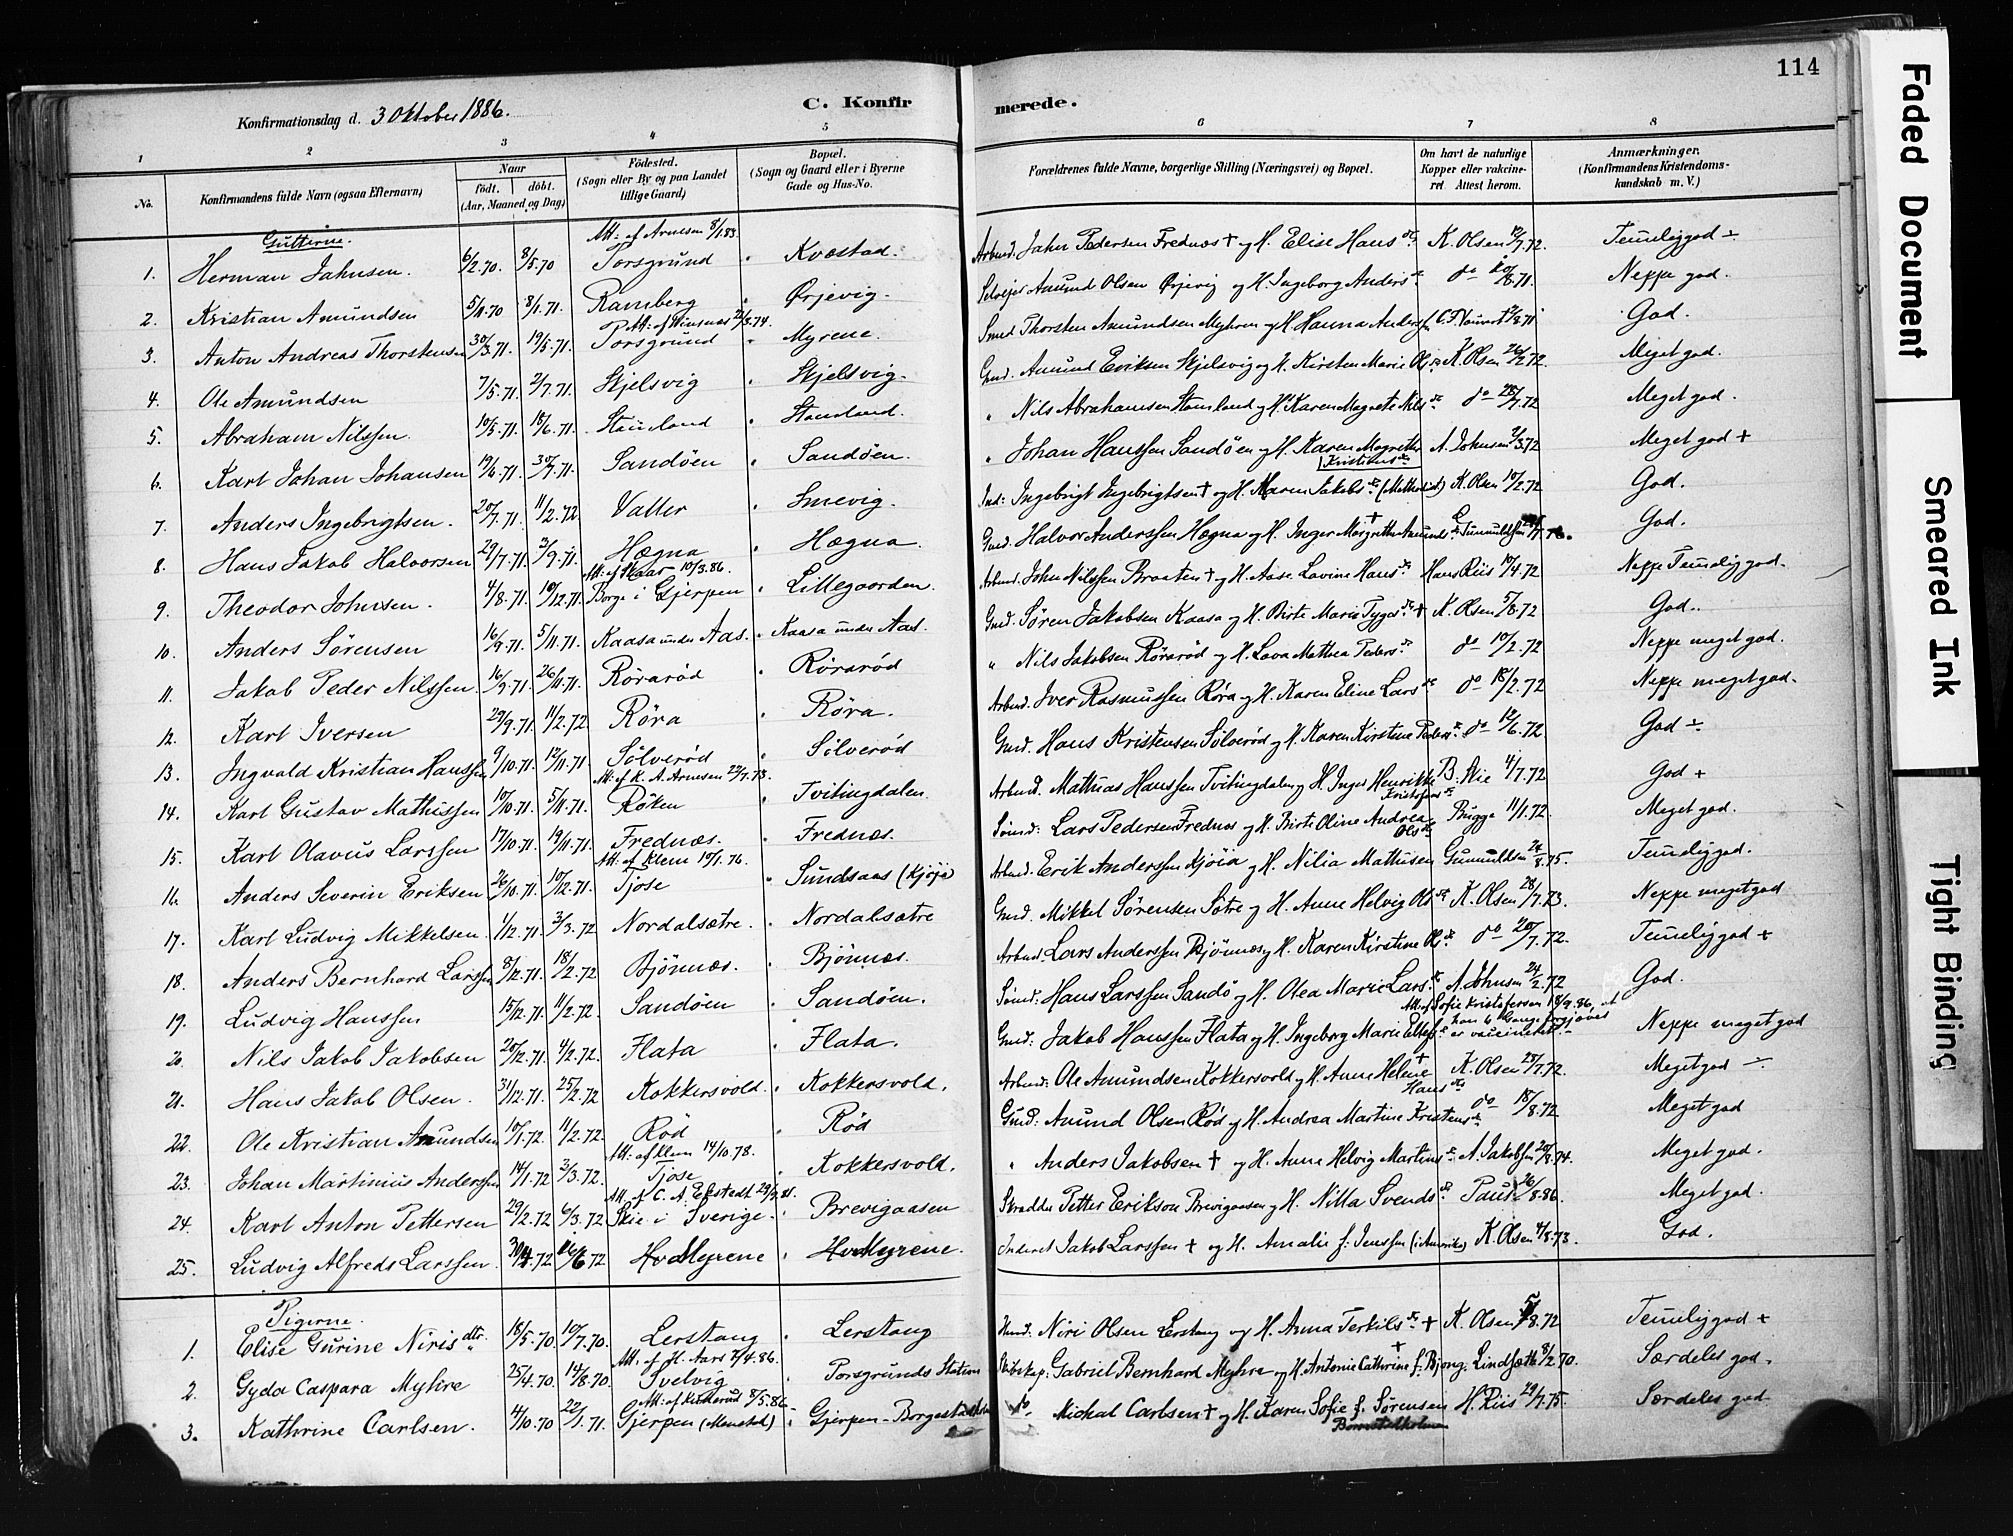 114
Konfirmationsdag d. 3 Oktober 1886.
C. Konfirmerede.
1 2 3 4 5 6 7 8
No.
Konfirmandens fulde Navn (ogsaa Efternavn)
Naar
födt. döbt.
(Aar, Maaned og Dag)
Födested.
(Sogn eller By og paa Landet
tillige Gaard)
Bopæl.
(Sogn og Gaard eller i Byerne
Gade og Hus-No.
Forældrenes fulde Navne, borgerlige Stilling (Næringsvei) og Bopæl.
Om havt de naturlige
Kopper eller vakcine-
ret Attest herom.
Anmærkninger.
(Konfirmandens Kristendoms-
kundskab m. V.)
Gutterne.
Att: af Arnesen 8/1.83.
1. Herman Jahnsen. 6/2.70. 8/5.70 Porsgrund Kvæstad. Arbeid. Jahn Pedersen Frednæs + og H. Elise Hansdr. K. Olsen 12/7.72. Temelig god ÷
2. Kristian Amundsen 5/11.70 8/1.71. Ramberg Ørjevig. Selveier Amund Olsen Ørjevig og H. Ingeborg Andersdr. do 20/8.71. Neppe god.
3. Anton Andreas Thorstensen 30/3.71. 19/5.71. Porsgrund Myrene. Smed Thorsten Amundsen Myhren og H. Hanna Andersen God.
4. Ole Amundsen 7/5.71. 2/7.71. Skjelsvig Skjelsvig. Gmd. Amund Eriksen Skjelsvig og H. Kirsten Marie Olsdr. K. Olsen 26/2.72. Meget god.
5. Abraham Nilssen. 10/5.71. 18/6.71. Stamland Stamland. " Nils Abrahamsen Stamland og H. Karen Magrete Nilsdr. do 28/7.72 Meget god.
6. Karl Johan Johansen 19/6.71. 30/7.71. Sandöen Sandöen. " Johan Hanssen Sandöen og H. Karen Magrethe Kristensdr. A. Johnsen 2/3.72 Meget god +
7. Anders Ingebrigtsen. 20/7.71. 11/2.72 Valler Smevig. Ind: Ingebrigt Ingebrigtsen + og H. Maren Jakobsdr. (Methodist) K. Olsen 10/2.72 God.
8. Hans Jakob Halvorsen 29/7.71. 3/9.71. Hægna Hægna. Gmd. Halvor Anderssen Hægna og H. Inger Margrethe Amundsdr. + God.
Att: af Skaar 10/3.86.
9. Theodor Johnsen. 4/8.71. 10/12.71. Borge i Gjerpen Lillegaarden. Arbeid. John Nilssen Braaten + og H. Aase Lovine Hansdr. Hans Riis 10/4.72 Neppe Temelig god.
10. Anders Sörensen 16/9.71. 5/11.71. Kaasa under Aas. Kaasa under Aas. Gmd. Sören Jakobsen Kaasa og H. Birte Marie Tygesdr. + K. Olsen 5/8.72 God.
11. Jakob Peder Nilssen 16/9.71. 26/11.71. Rörarød Rörarød " Nils Jakobsen Rörarød og H. Lava Mathea Pedersdr. do 10/2.72 Neppe meget god.
12. Karl Iversen 29/9.71. 11/2.72 Röra Röra. Arbeid. Iver Rasmussen Röra og H. Karen Eline Larsdr. do 18/2.72 Neppe meget god.
13. Ingvald Kristian Hanssen 9/10.71. 12/11.71 Sölverød Sölverød Gmd. Hans Kristensen Sölverød og H. Karen Kirstine Pedersdr. do 12/6.72 God ÷
Att: af K. A. Arnesen 29/7.73.
14. Karl Gustav Mathissen 10/10.71. 5/11.71. Röken Tvitingdalen Arbeid. Mathias Hanssen Tvitingdalen og H. Inger Henrikke Kristofersdr. B. Skie 4/7.72 God +
15. Karl Olavus Larssen 17/10.71. 19/11.71. Frednæs. Frednæs. Sömd: Lars Pedersen Frednæs og H. Birte Oline Andrea Olsdr. Bugge 11/1.72. Meget god.
Att: af Klem 19/1.76.
16. Anders Severin Eriksen 26/10.71. 10/12.71. Tjose Sundsaas (Kjöja) Arbeid. Erik Anderssen Kjöia og H. Nilia Mathisen Gunnuldsen 24/8.75. Temelig god.
17. Karl Ludvig Mikkelsen 1/12.71. 3/3.72 Nordalsætre. Nordalsætre Gmd. Mikkel Sörensen Sætre og H. Anne Helvig Olsdr. K. Olsen 28/7.73. Neppe meget god
18. Anders Bernhard Larssen 8/12.71. 18/2.72 Bjönnæs. Bjönnæs. Arbeid Lars Anderssen Bjönnæs og H. Karen Kirstine Olsdr. do 20/7.72. Temelig god +
19. Ludvig Hanssen 15/12.71. 11/2.72. Sandöen Sandöen. Sömd: Hans Larssen Sandö og H. Olea Marie Larsdr. A. Johnsen 24/2.72 God.
Att. af Sofie Kristofersen 18/9.86, at
20. Nils Jakob Jakobsen 20/12.71. 4/2.72. Flata Flata. Gmd: Jakob Hanssen Flata og H. Ingeborg Marie Ellefsdr. han 6 Gange forgjæves er vaccineret. Neppe meget god
21. Hans Jakob Olsen. 31/12.71. 25/2.72 Kokkersvold. Kokkersvold. Arbeid: Ole Amundsen Kokkersvold og H. Anne Helene + Hansdr. K. Olsen 25/7.72. Meget god ÷
22. Ole Kristian Amundsen 10/1.72. 11/2.72. Röd Röd Gmd: Amund Olsen Röd og H. Andrea Martine Kristensdr. do 18/8.72 Meget god
Att: af Klem 14/10.78.
23. Johan Martinius Anderssen 14/1.72 3/3.72. Tjose Kokkersvold. " Anders Jakobsen + og H. Anne Helvig Martinsdr. A. Jakobsen 20/8.74. Meget god.
24. Karl Anton Pettersen 29/2.72 6/3.72. Skie i Sverige. Brevigaasen Skrædder Petter Erikson Brevigaasen og H. Nilla Svendsdr. Paus 26/8.86. Meget god.
25. Ludvig Alfreds Larssen. 30/4.72 16/6.72 Hvalmyrene Hvalmyrene. Inderst Jakob Larssen + og H. Amalie f. Jenssen (i Amerika) K. Olsen 4/8.73. God.
Pigerne.
1. Elise Gurine Nirisdtr. 18/5.70 10/7.70. Lerstang Lerstang Husmd. Niri Olsen Lerstang og H. Anna Terkilsdr. + K. Olsen 5/8.72 Temelig god +
Att. af H. Aars 7/4.86.
2. Gyda Caspara Myhre 25/4.70. 14/8.70. Svelvig Porsgrunds Station Skibskap: Gabriel Bernhard Myhre og H. Antonie Cathrine + f. Bjong. Lindsæth 8/2.70. Særdeles god.
3. Kathrine Carlsen. 4/10.70 22/1.71. Gjerpen (Menstad) Gjerpen-Borgestad do Michal Carlsen + og H. Karen Sofie f. Sörensen H. Riis 29/7.75. Særdeles god
Faded Document
Smeared Ink
Tight Binding